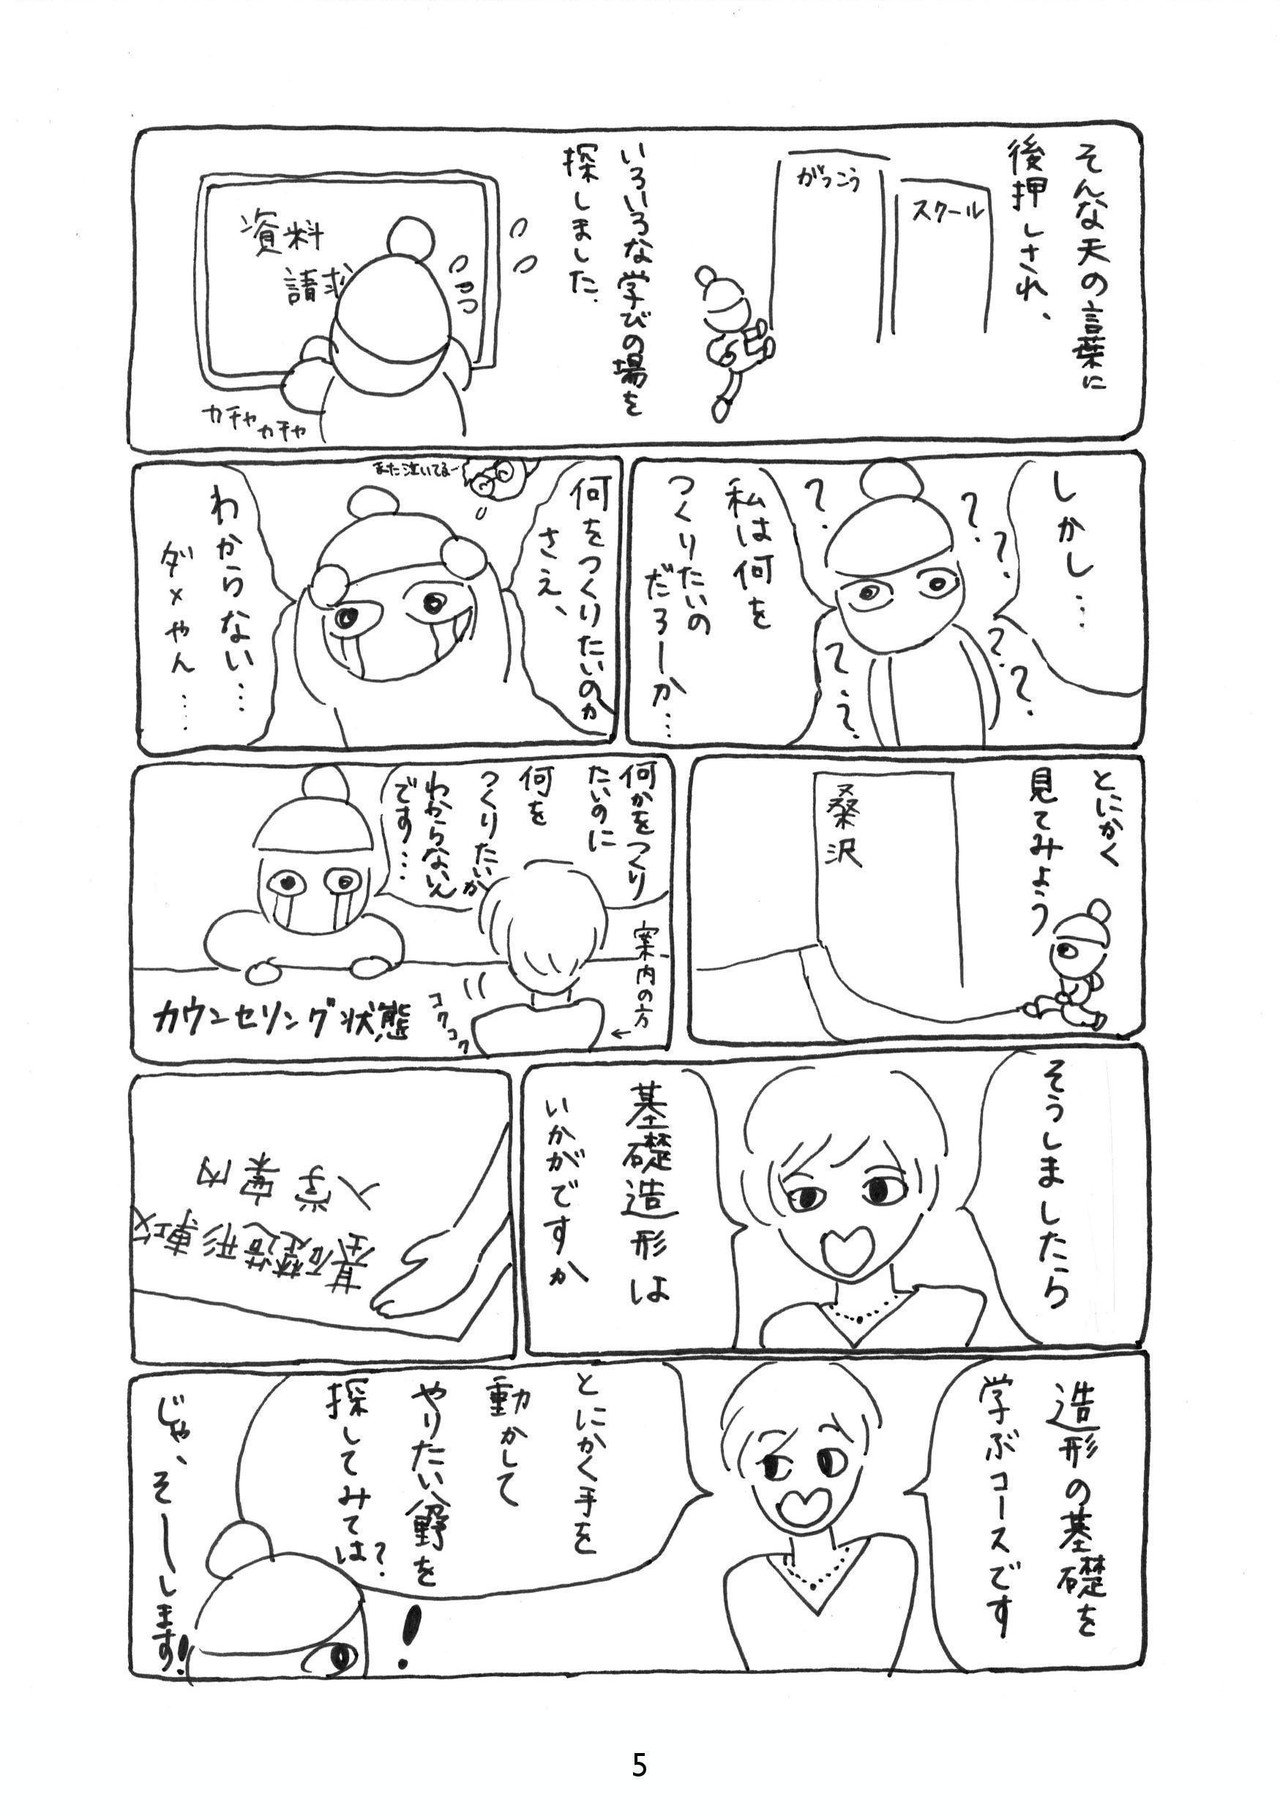 そんな天の言葉に
後押しされ、
がっこう
スクール
いろいろな学びの場を
探しました。
資料
請求
カチャ
カチャ
しかし…
?
?
?
?
?
?
?
私は何を
つくりたいの
だろーか…
また泣いてるー
何をつくりたいのか
さえ、
わからない…
ダメやん……
とにかく
見てみよう
桑沢
何かをつくり
たいのに
何を
つくりたいか
わからないん
です…
案内の方
コクコク
カウンセリング状態
そうしましたら
基礎造形は
いかがですか
基礎造形専攻
入学案内
造形の基礎を
学ぶコースです
とにかく手を
動かして
やりたい分野を
探してみては?
!
じゃ、そーします!
5